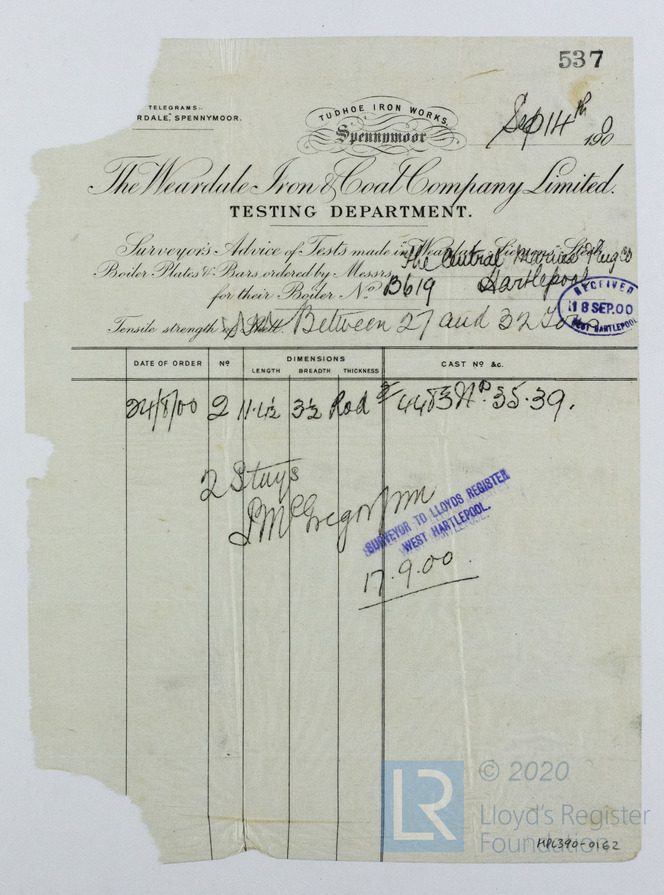 537
TELEGRAMS:-
RDALE, SPENNYMOOR.
TUDHOE IRON WORKS,
Spennymoor
Sep 14th 1900
The Weardale Iron & Coal Company Limited.
TESTING DEPARTMENT.
Surveyor's Advice of Tests made in
Boiler Plates & Bars ordered by Messrs The Central Marine Eng Co
Hartlepool
for their Boiler No B619
RECEIVED
18 SEP. 00
WEST HARTLEPOOL
Tensile strength of Shell Between 27 and 32 Tons
DATE OF ORDER No DIMENSIONS CAST No &c.
LENGTH BREADTH THICKNESS
24/8/00 2 11.4½ 3½ Rod 4483 35.39.
2 Stays
SURVEYOR TO LLOYDS REGISTER
WEST HARTLEPOOL.
17.9.00
LR
© 2020
Lloyd's Register
Foundation
HPL390-0162